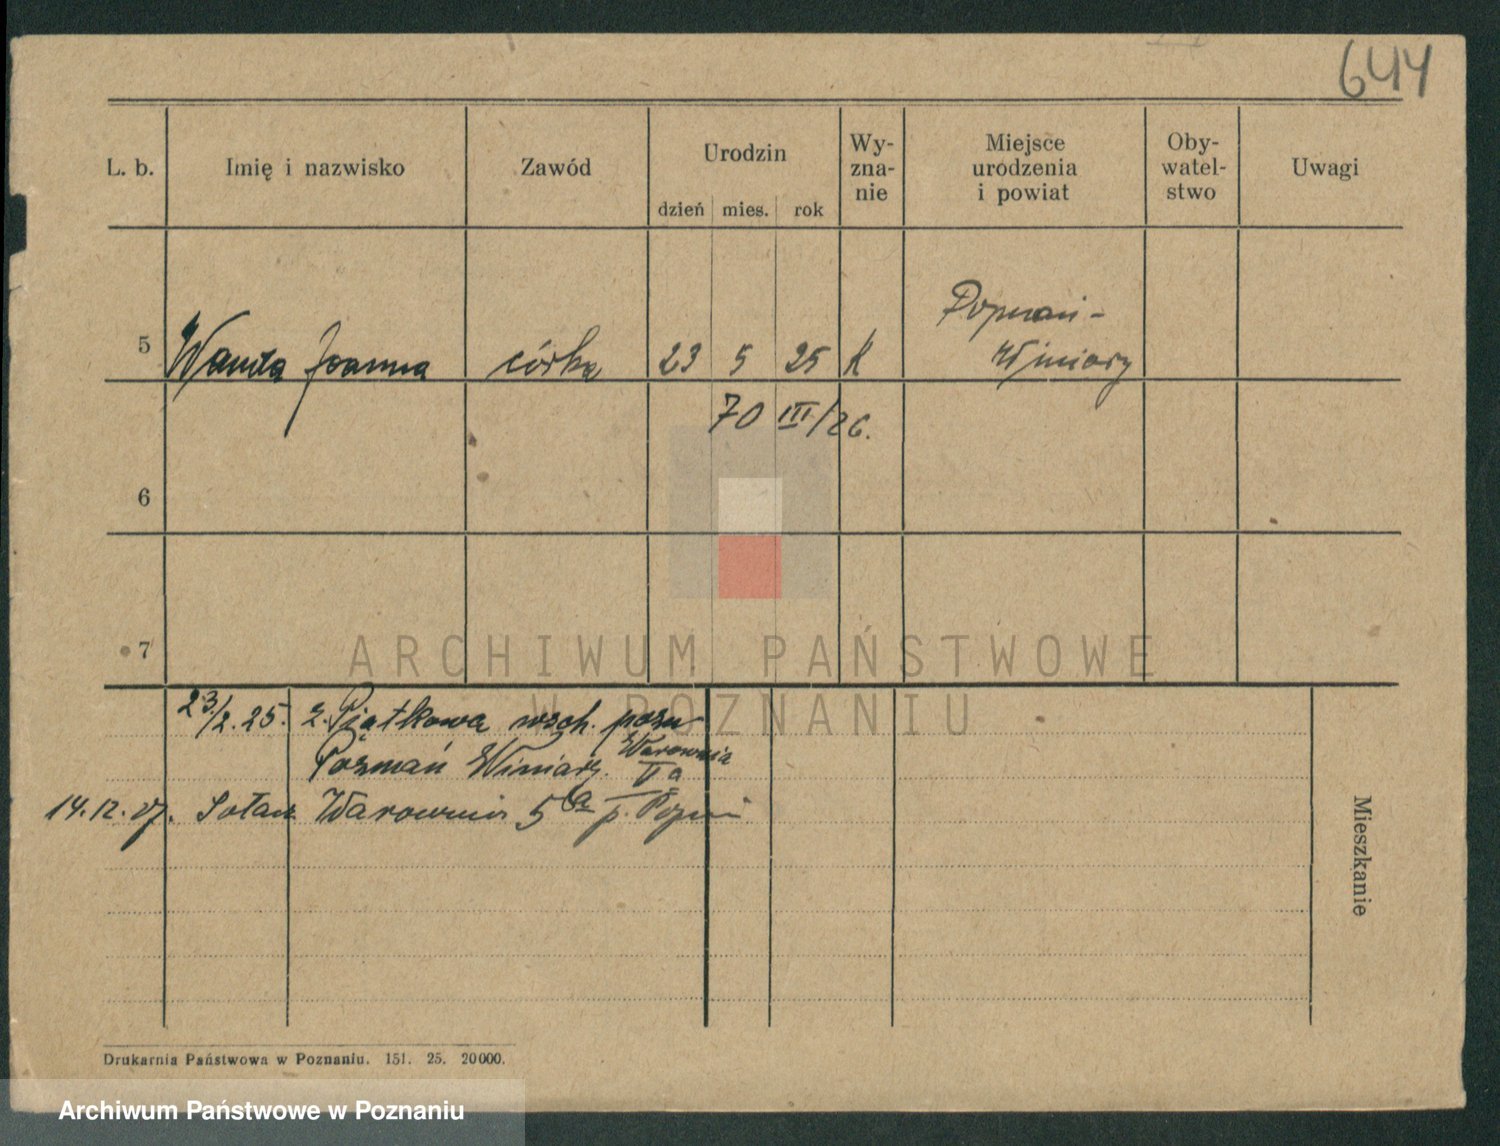 644
L. b.
Imię i nazwisko
Zawód
Urodzin
dzień mies. rok
Wy-
zna-
nie
Miejsce
urodzenia
i powiat
Oby-
watel-
stwo
Uwagi
5 Wanda Joanna córka 23 5 25 K
Poznań-
Winiary
70 III/26.
6
7
ARCHIWUM PAŃSTWOWE
W POZNANIU
23/2.25. z. Piątkowa wsch. pozn
Poznań Winiary. Warownia
Va
14.12.27. Sołacz Warownia 5a p.
Mieszkanie
Drukarnia Państwowa w Poznaniu. 151. 25. 20000.
Archiwum Państwowe w Poznaniu